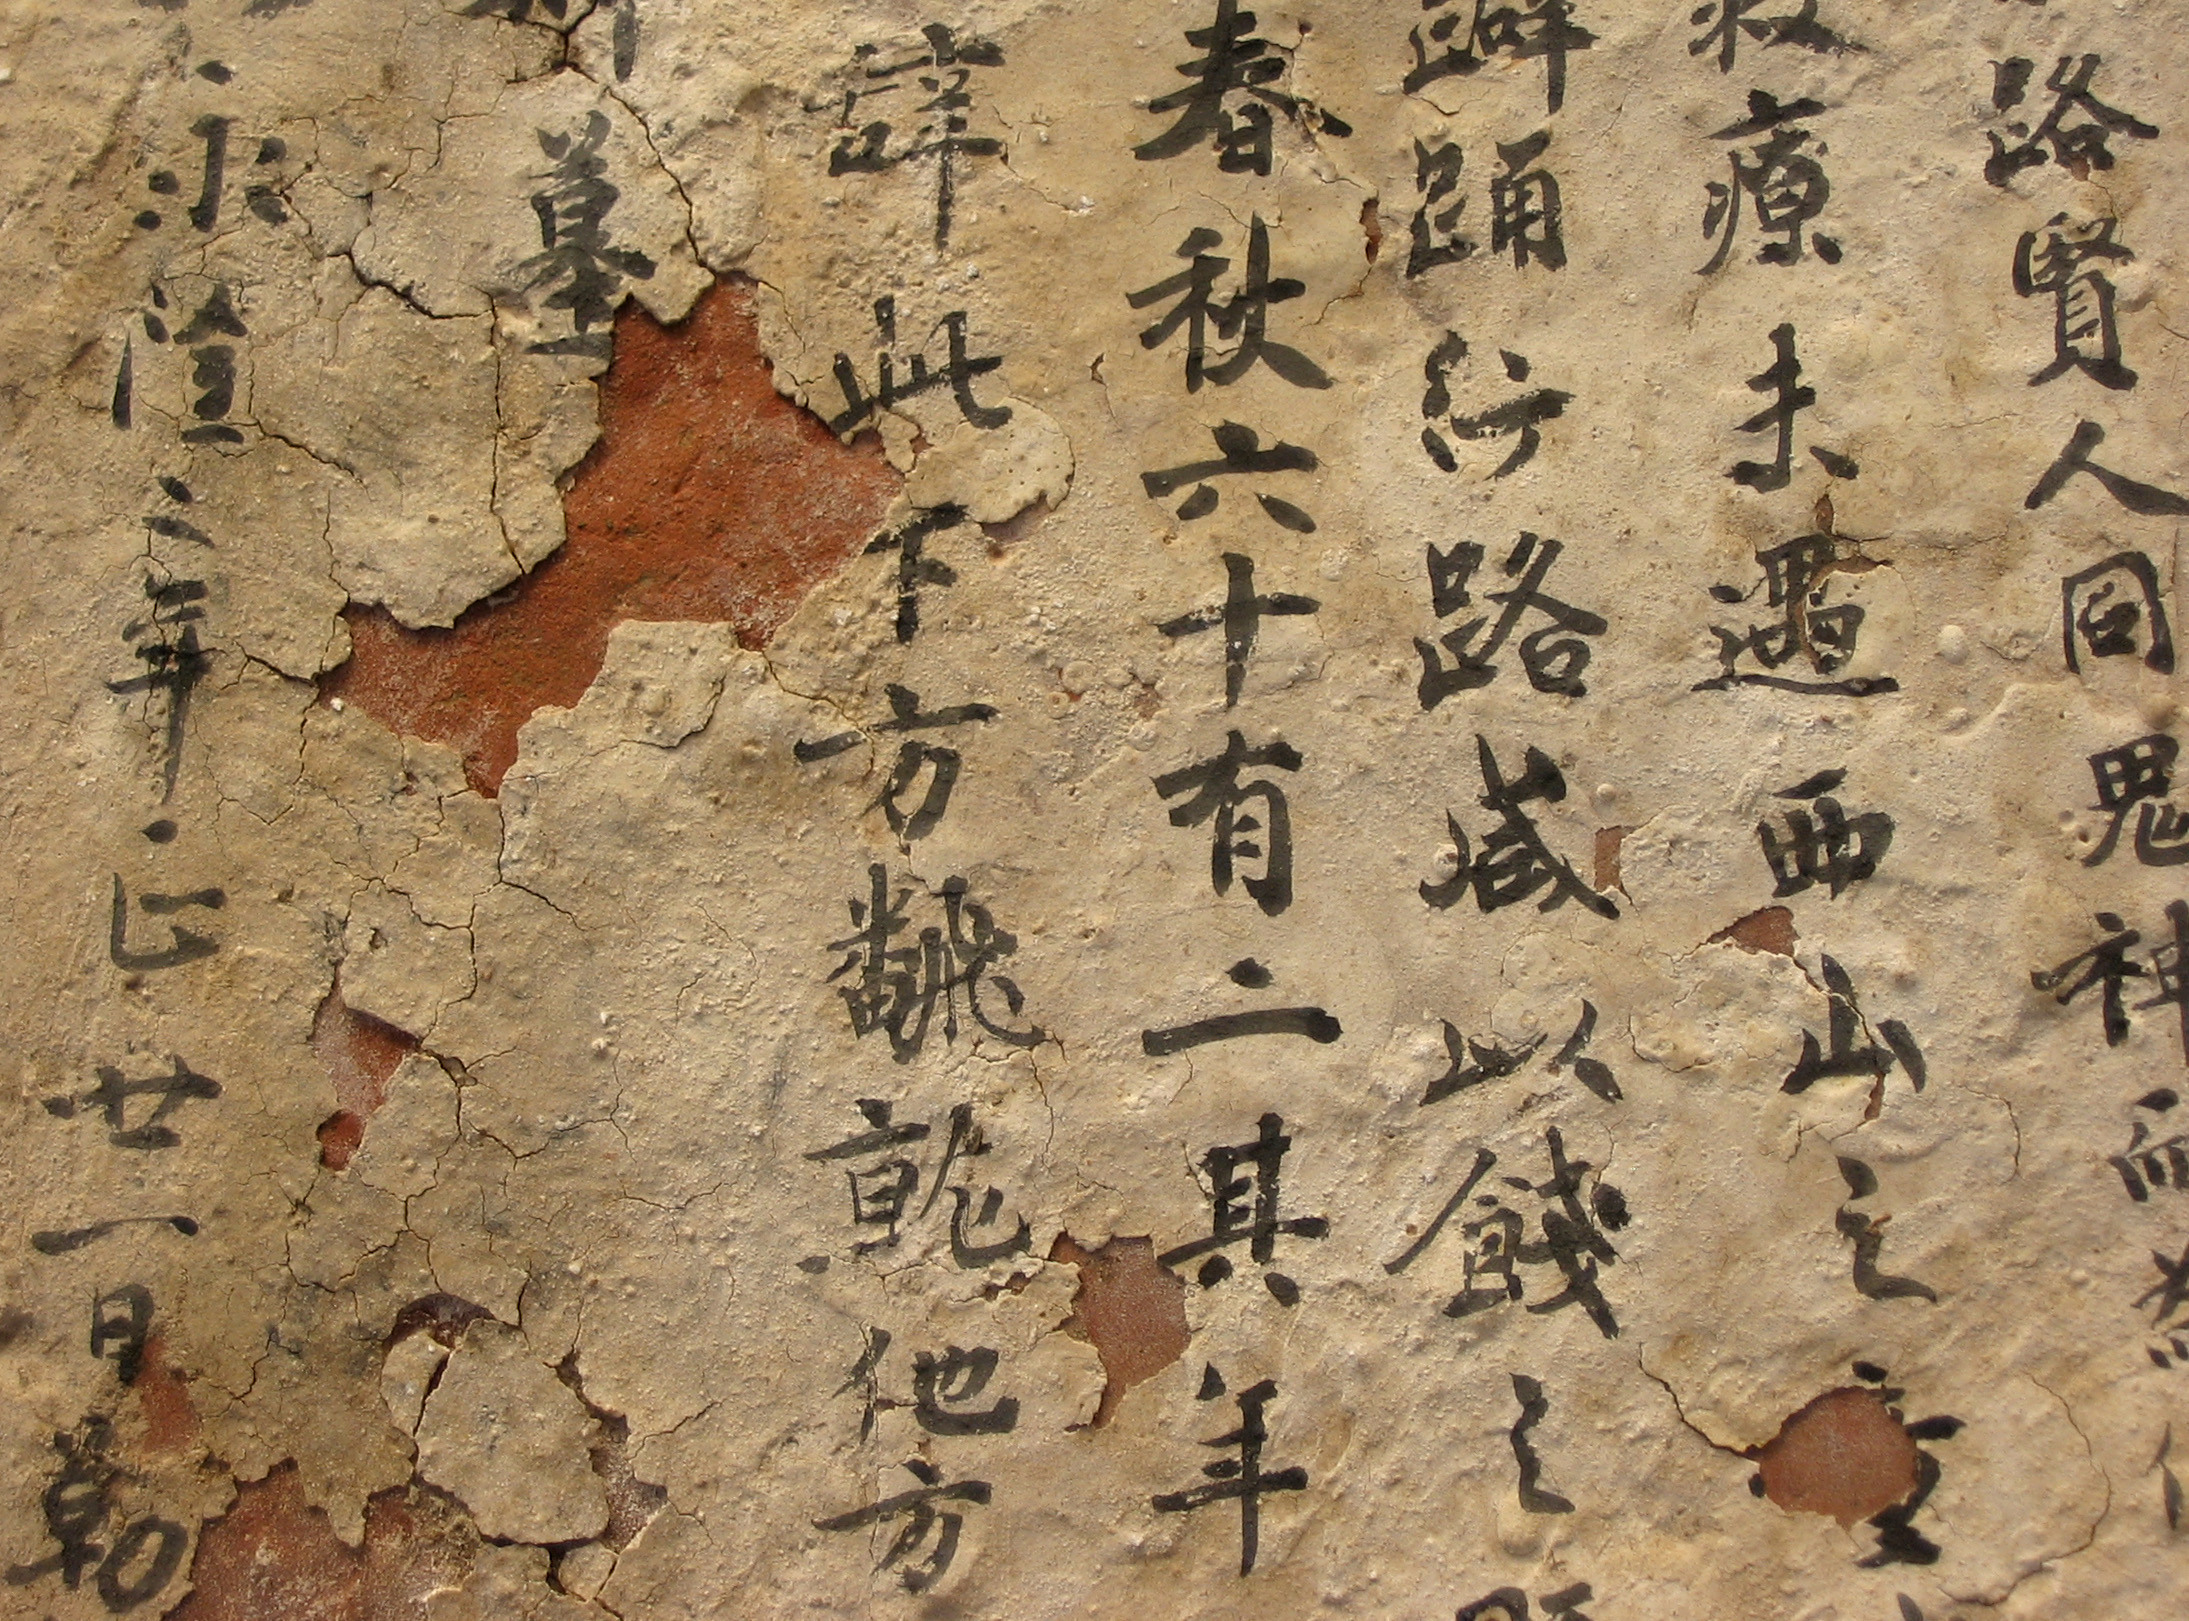 路賢人同鬼神而
救療未遇西山之童
躃踊行路咸以餞之
春秋六十有二其年
辞此下方飜就他方
墓
永隆二年正廿一日勒